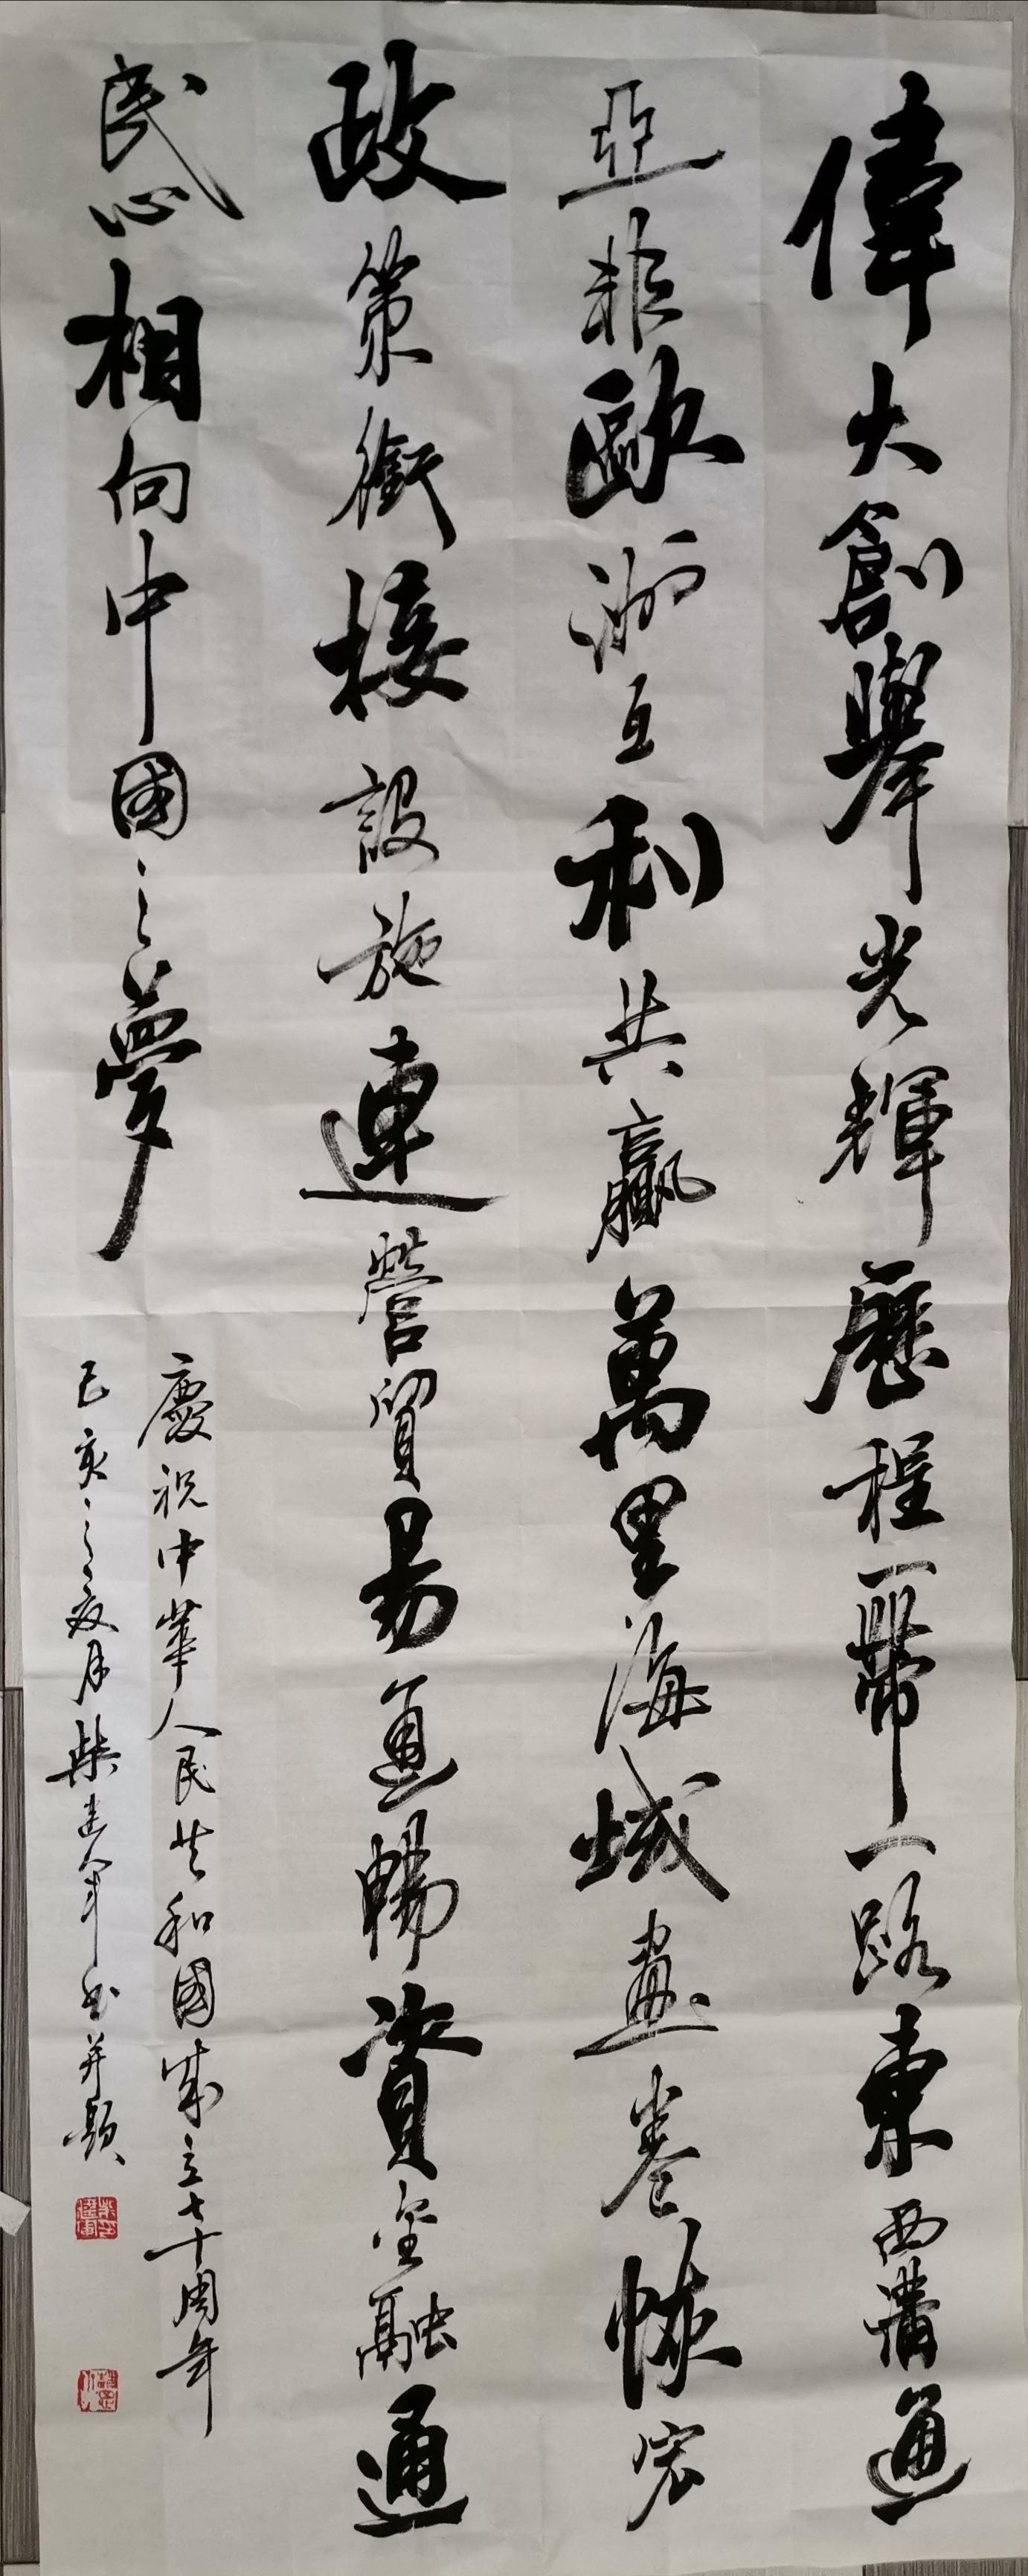 偉大創舉光輝歷程一帶一路東西溝通
亞非歐洲互利共贏萬里海域畫卷恢宏
政策銜接設施連營貿易通暢資金融通
民心相向中國之夢
慶祝中華人民共和國成立七十周年
己亥之夏月柴建軍書并題